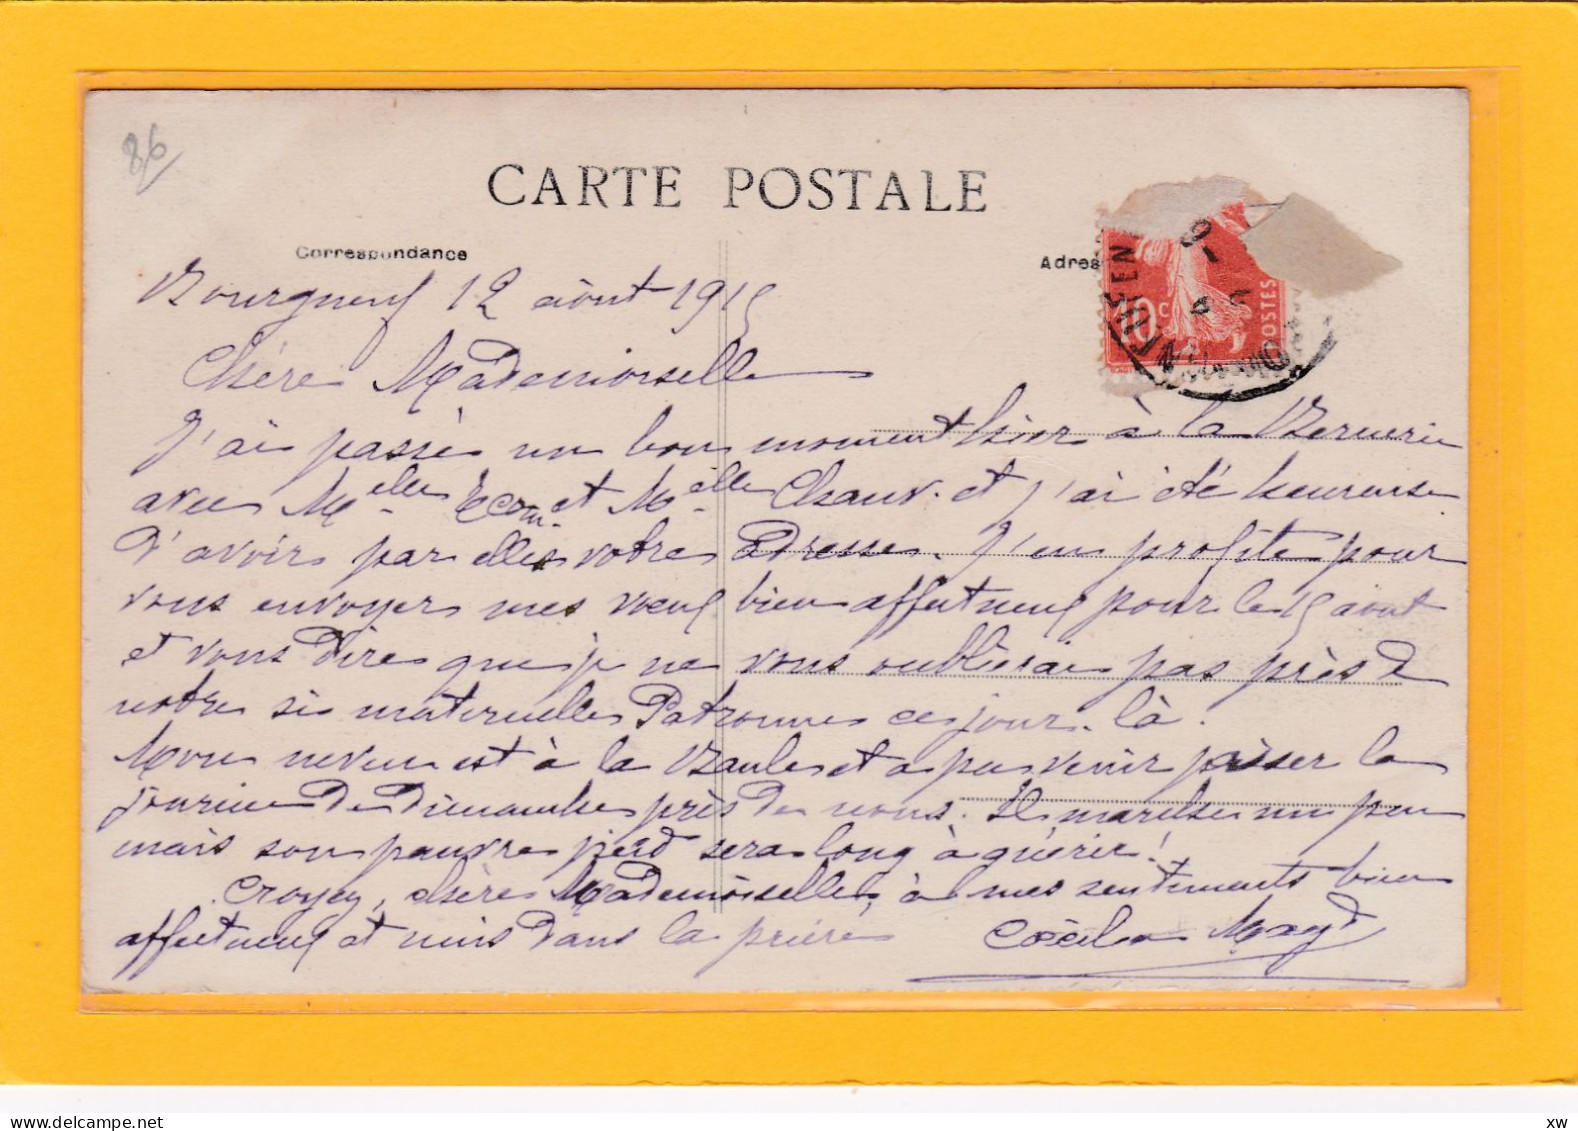 86
CARTE POSTALE
Correspondance
Adres
10c
POSTES
Bourgneuf 12 août 1915
Chère Mademoiselle
J'ai passé un bon moment hier à la Bernerie
avec Melles et Melle Chauv. et j'ai été heureuse
d'avoir par elles votre adresse. J'en profite pour
vous envoyer mes vœux bien affectueux pour le 15 août
et vous dire que je ne vous oublierai pas près de
notre si maternelle Patronne ce jour-là.
Mon neveu est à la Baule et a pu venir passer la
journée de Dimanche près de nous. Il marche un peu
mais son pauvre pied sera long à guérir!
Croyez, chère Mademoiselle, à mes sentiments bien
affectueux et unis dans la prière
Cécile
xw